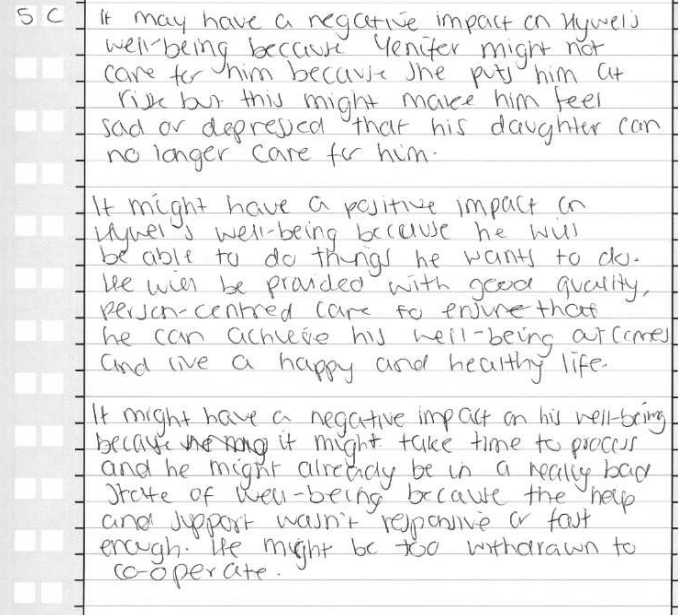 5 C It may have a negative impact on Hywel's
well-being because Yenifer might not
care for him because she puts him at
risk but this might make him feel
sad or depressed that his daughter can
no longer care for him.
It might have a positive impact on
Hywel's well-being because he will
be able to do things he wants to do.
He will be provided with good quality,
person-centred care to ensure that
he can achieve his well-being outcomes
and live a happy and healthy life.
It might have a negative impact on his well-being
because it might take time to process
and he might already be in a really bad
state of well-being because the help
and support wasn't responsive or fast
enough. He might be too withdrawn to
co-operate.